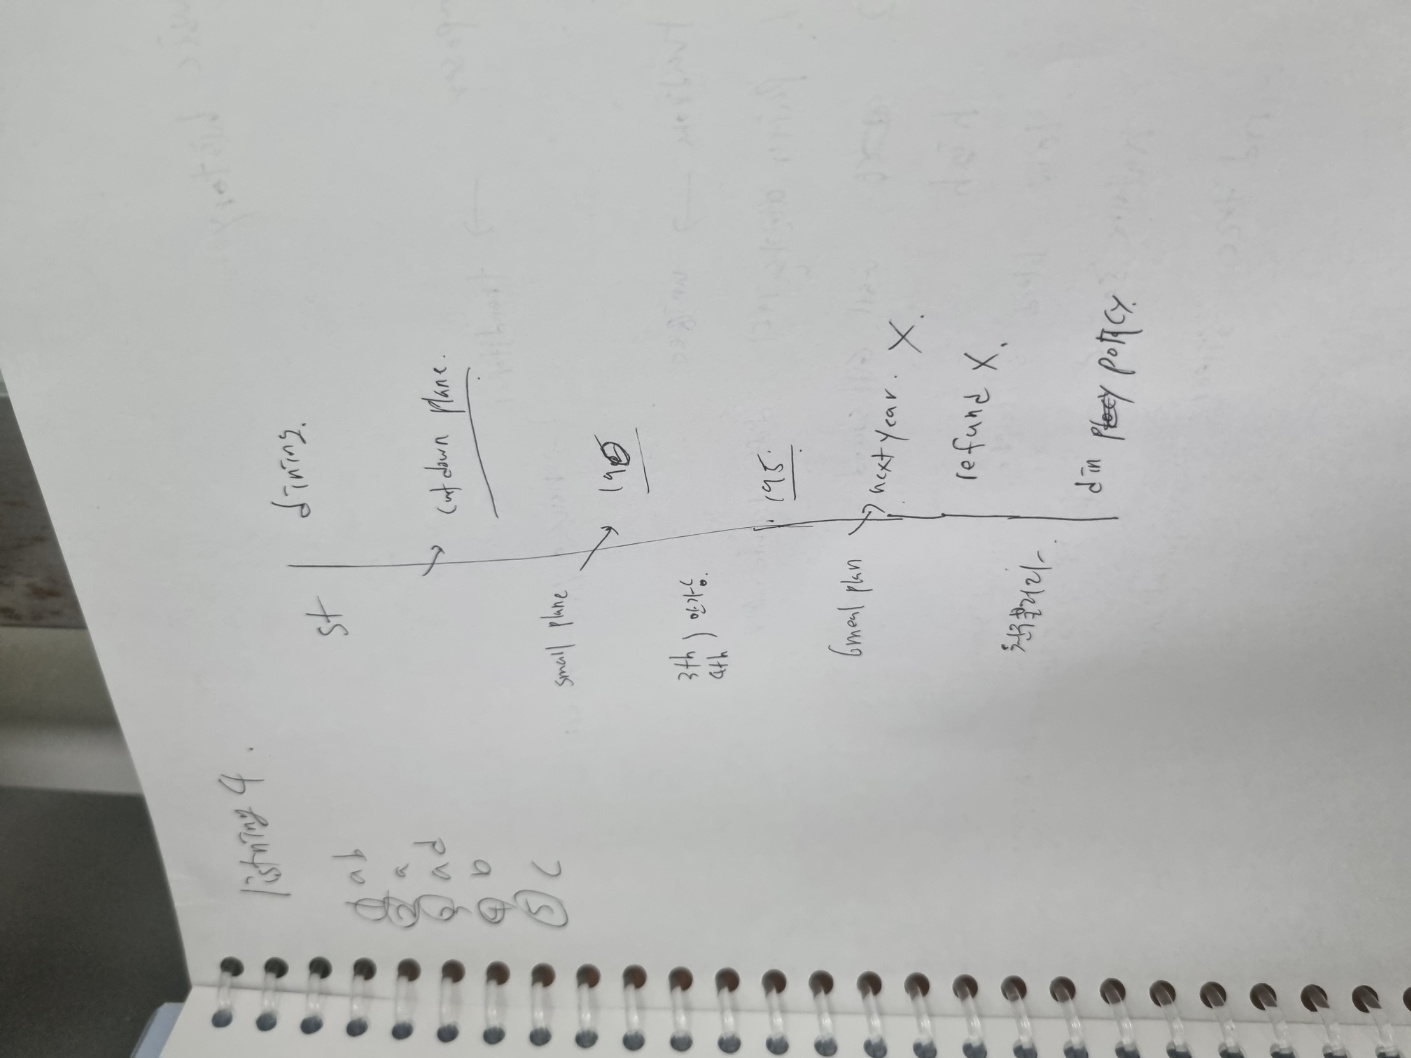 listning 4.
① ad
② a
③ ad
④ b
⑤ c
st dining.
cut down plane.
small plane
195
3th) 안가능
4th)
195.
6meal plan next year. X.
refund X.
din policy.